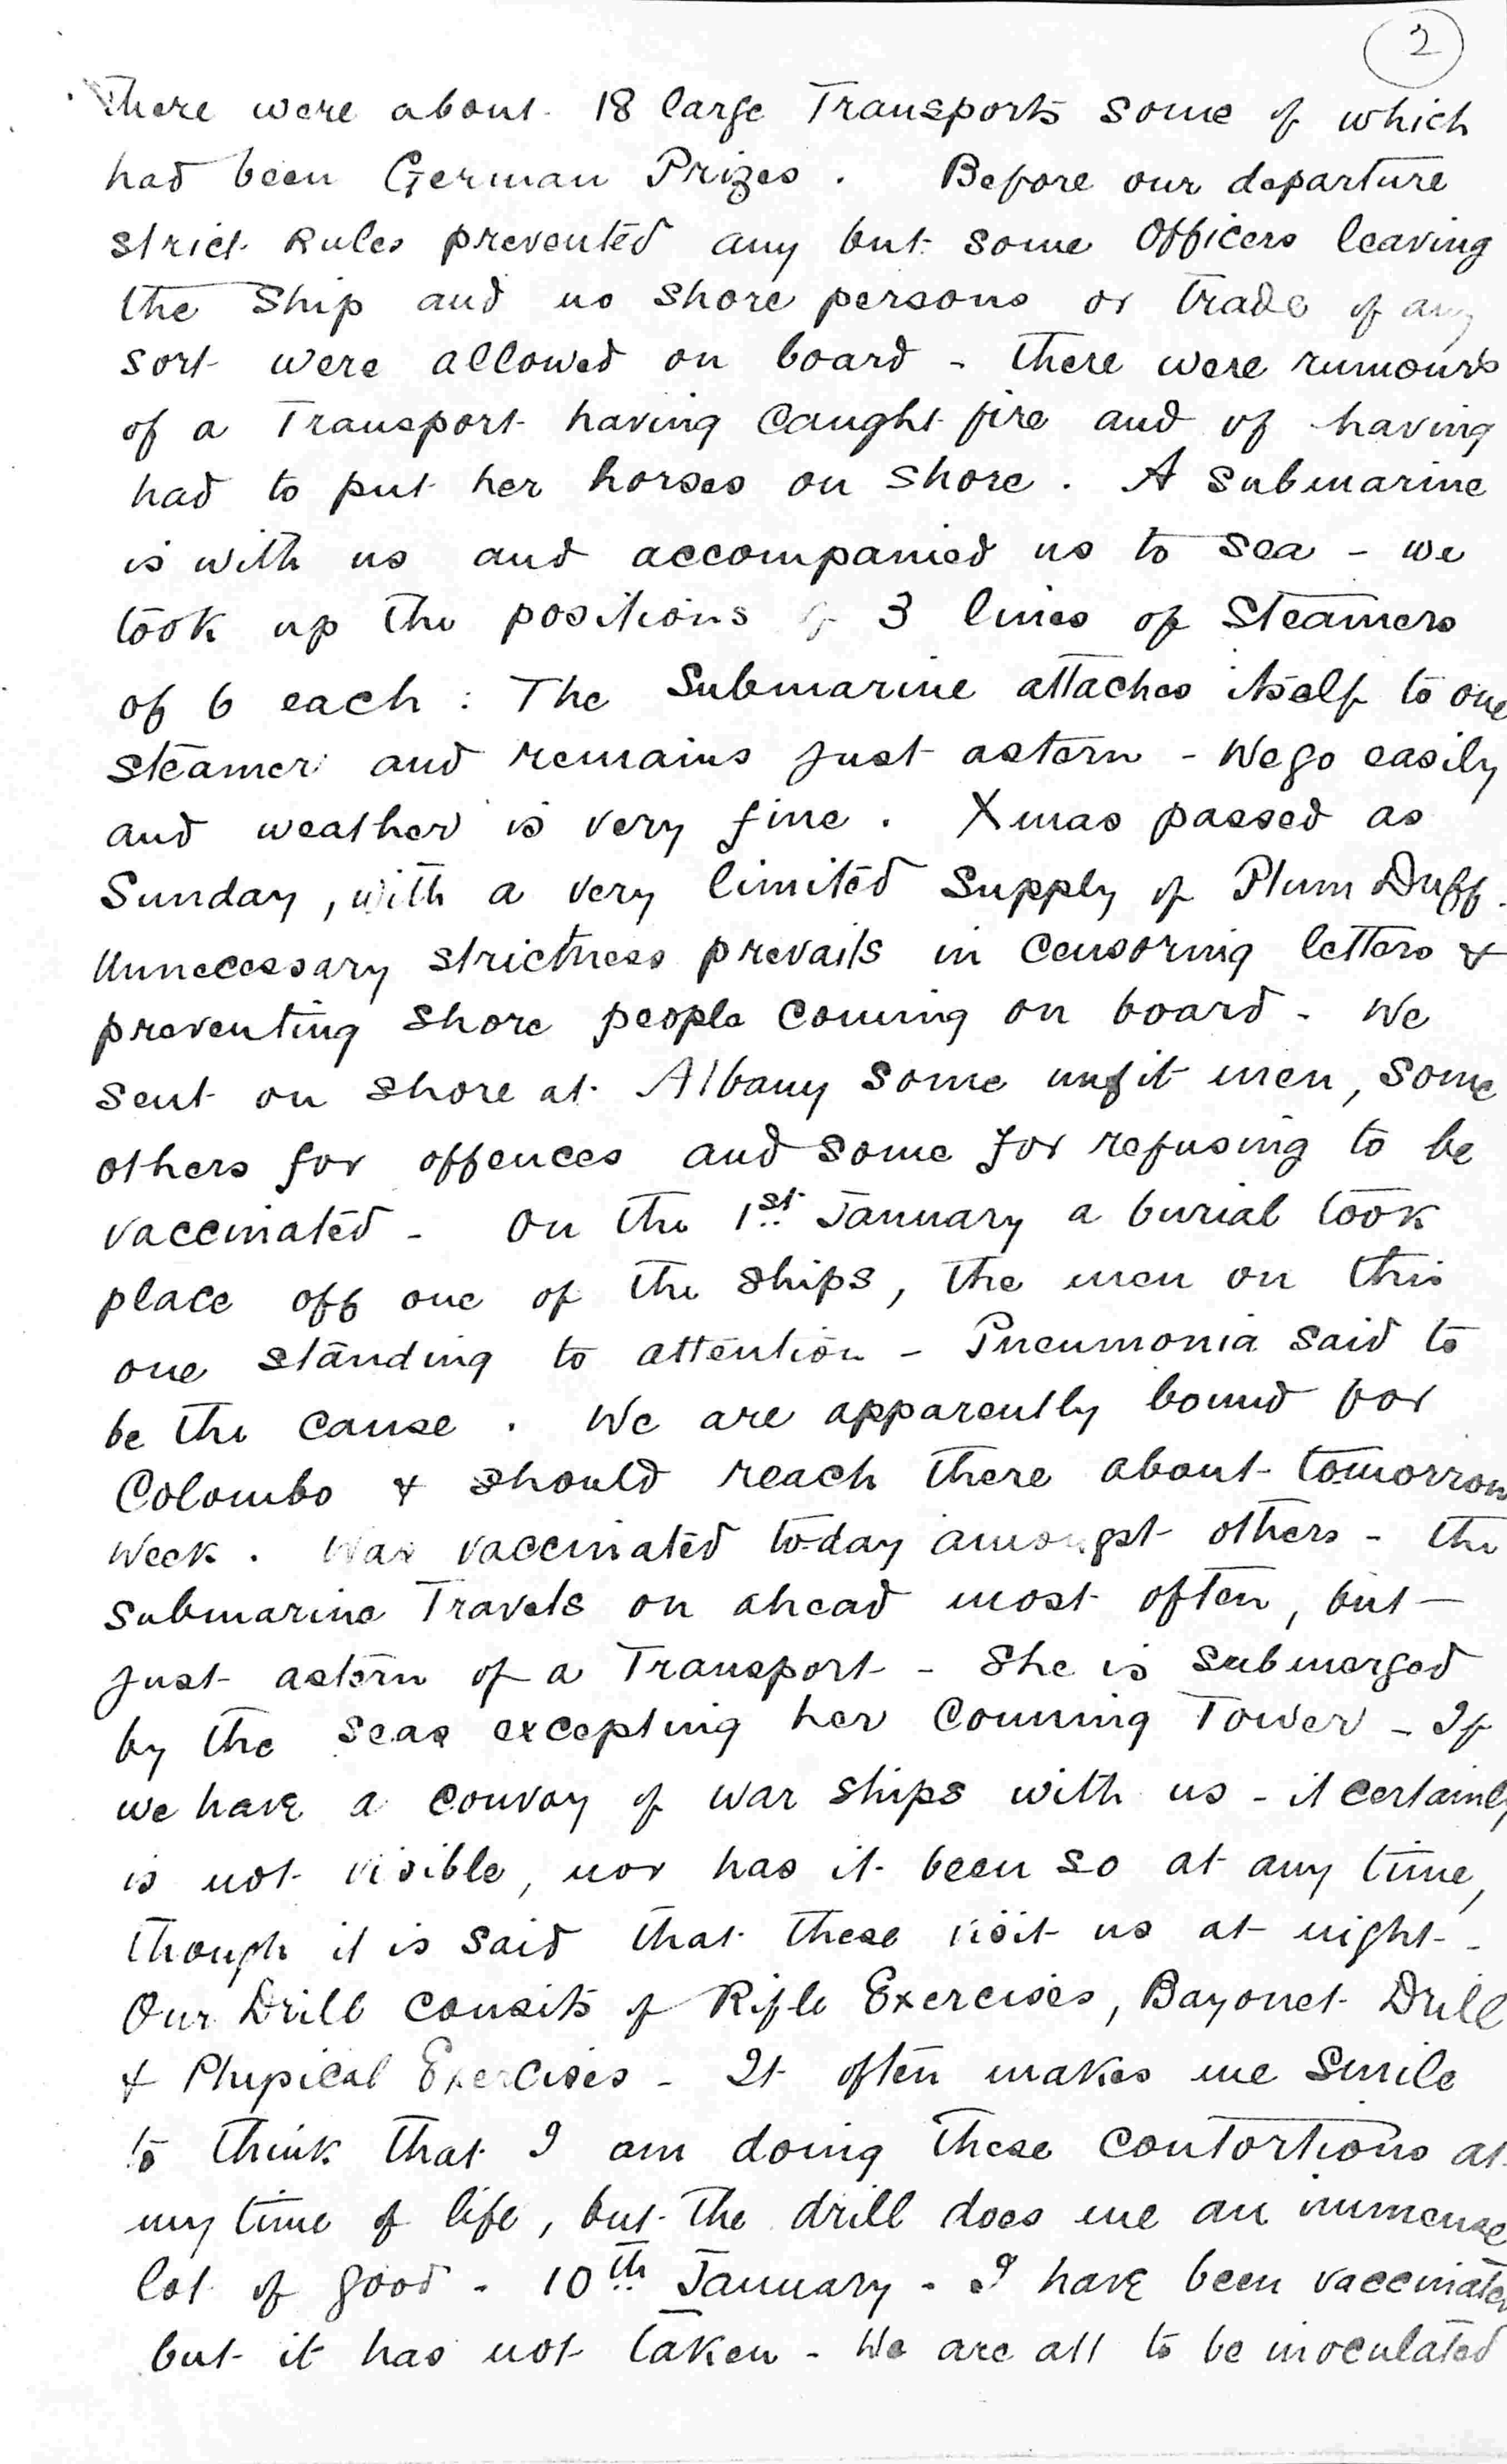 2
There were about 18 large Transports some of which
had been German Prizes. Before our departure
strict Rules prevented any but some Officers leaving
the Ship and no shore persons or trade of any
sort were allowed on board - there were rumours
of a Transport having caught fire and of having
had to put her horses on shore. A submarine
is with us and accompanied us to sea - we
took up the positions of 3 lines of Steamers
of 6 each: The Submarine attaches itself to one
steamer and remains just astern - We go easily
and weather is very fine. Xmas passed as
Sunday, with a very limited supply of Plum Duff.
Unnecessary strictness prevails in censoring letters &
preventing shore people coming on board - We
sent on shore at Albany some unfit men, some
others for offences and some for refusing to be
vaccinated - On the 1st January a burial took
place off one of the ships, the men on this
one standing to attention - Pneumonia said to
be the cause. We are apparently bound for
Colombo & should reach there about tomorrow
week. Was vaccinated today amongst others - the
submarine Travels on ahead most often, but -
just astern of a Transport - She is submerged
by the seas excepting her Conning Tower - If
we have a convoy of war ships with us - it certainly
is not visible, nor has it been so at any time,
though it is said that these visit us at night -
Our Drill consits of Rifle Exercises, Bayonet Drill
& Phypical Exercises - It often makes me smile
to think that I am doing these contortions at
my time of life, but the drill does me an immense
lot of good - 10th January - I have been vaccinated
but it has not taken - We are all to be inoculated